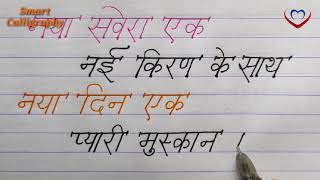 Smart
Calligraphy
नया सवेरा एक
नई किरण के साथ
नया दिन एक
प्यारी मुस्कान ।